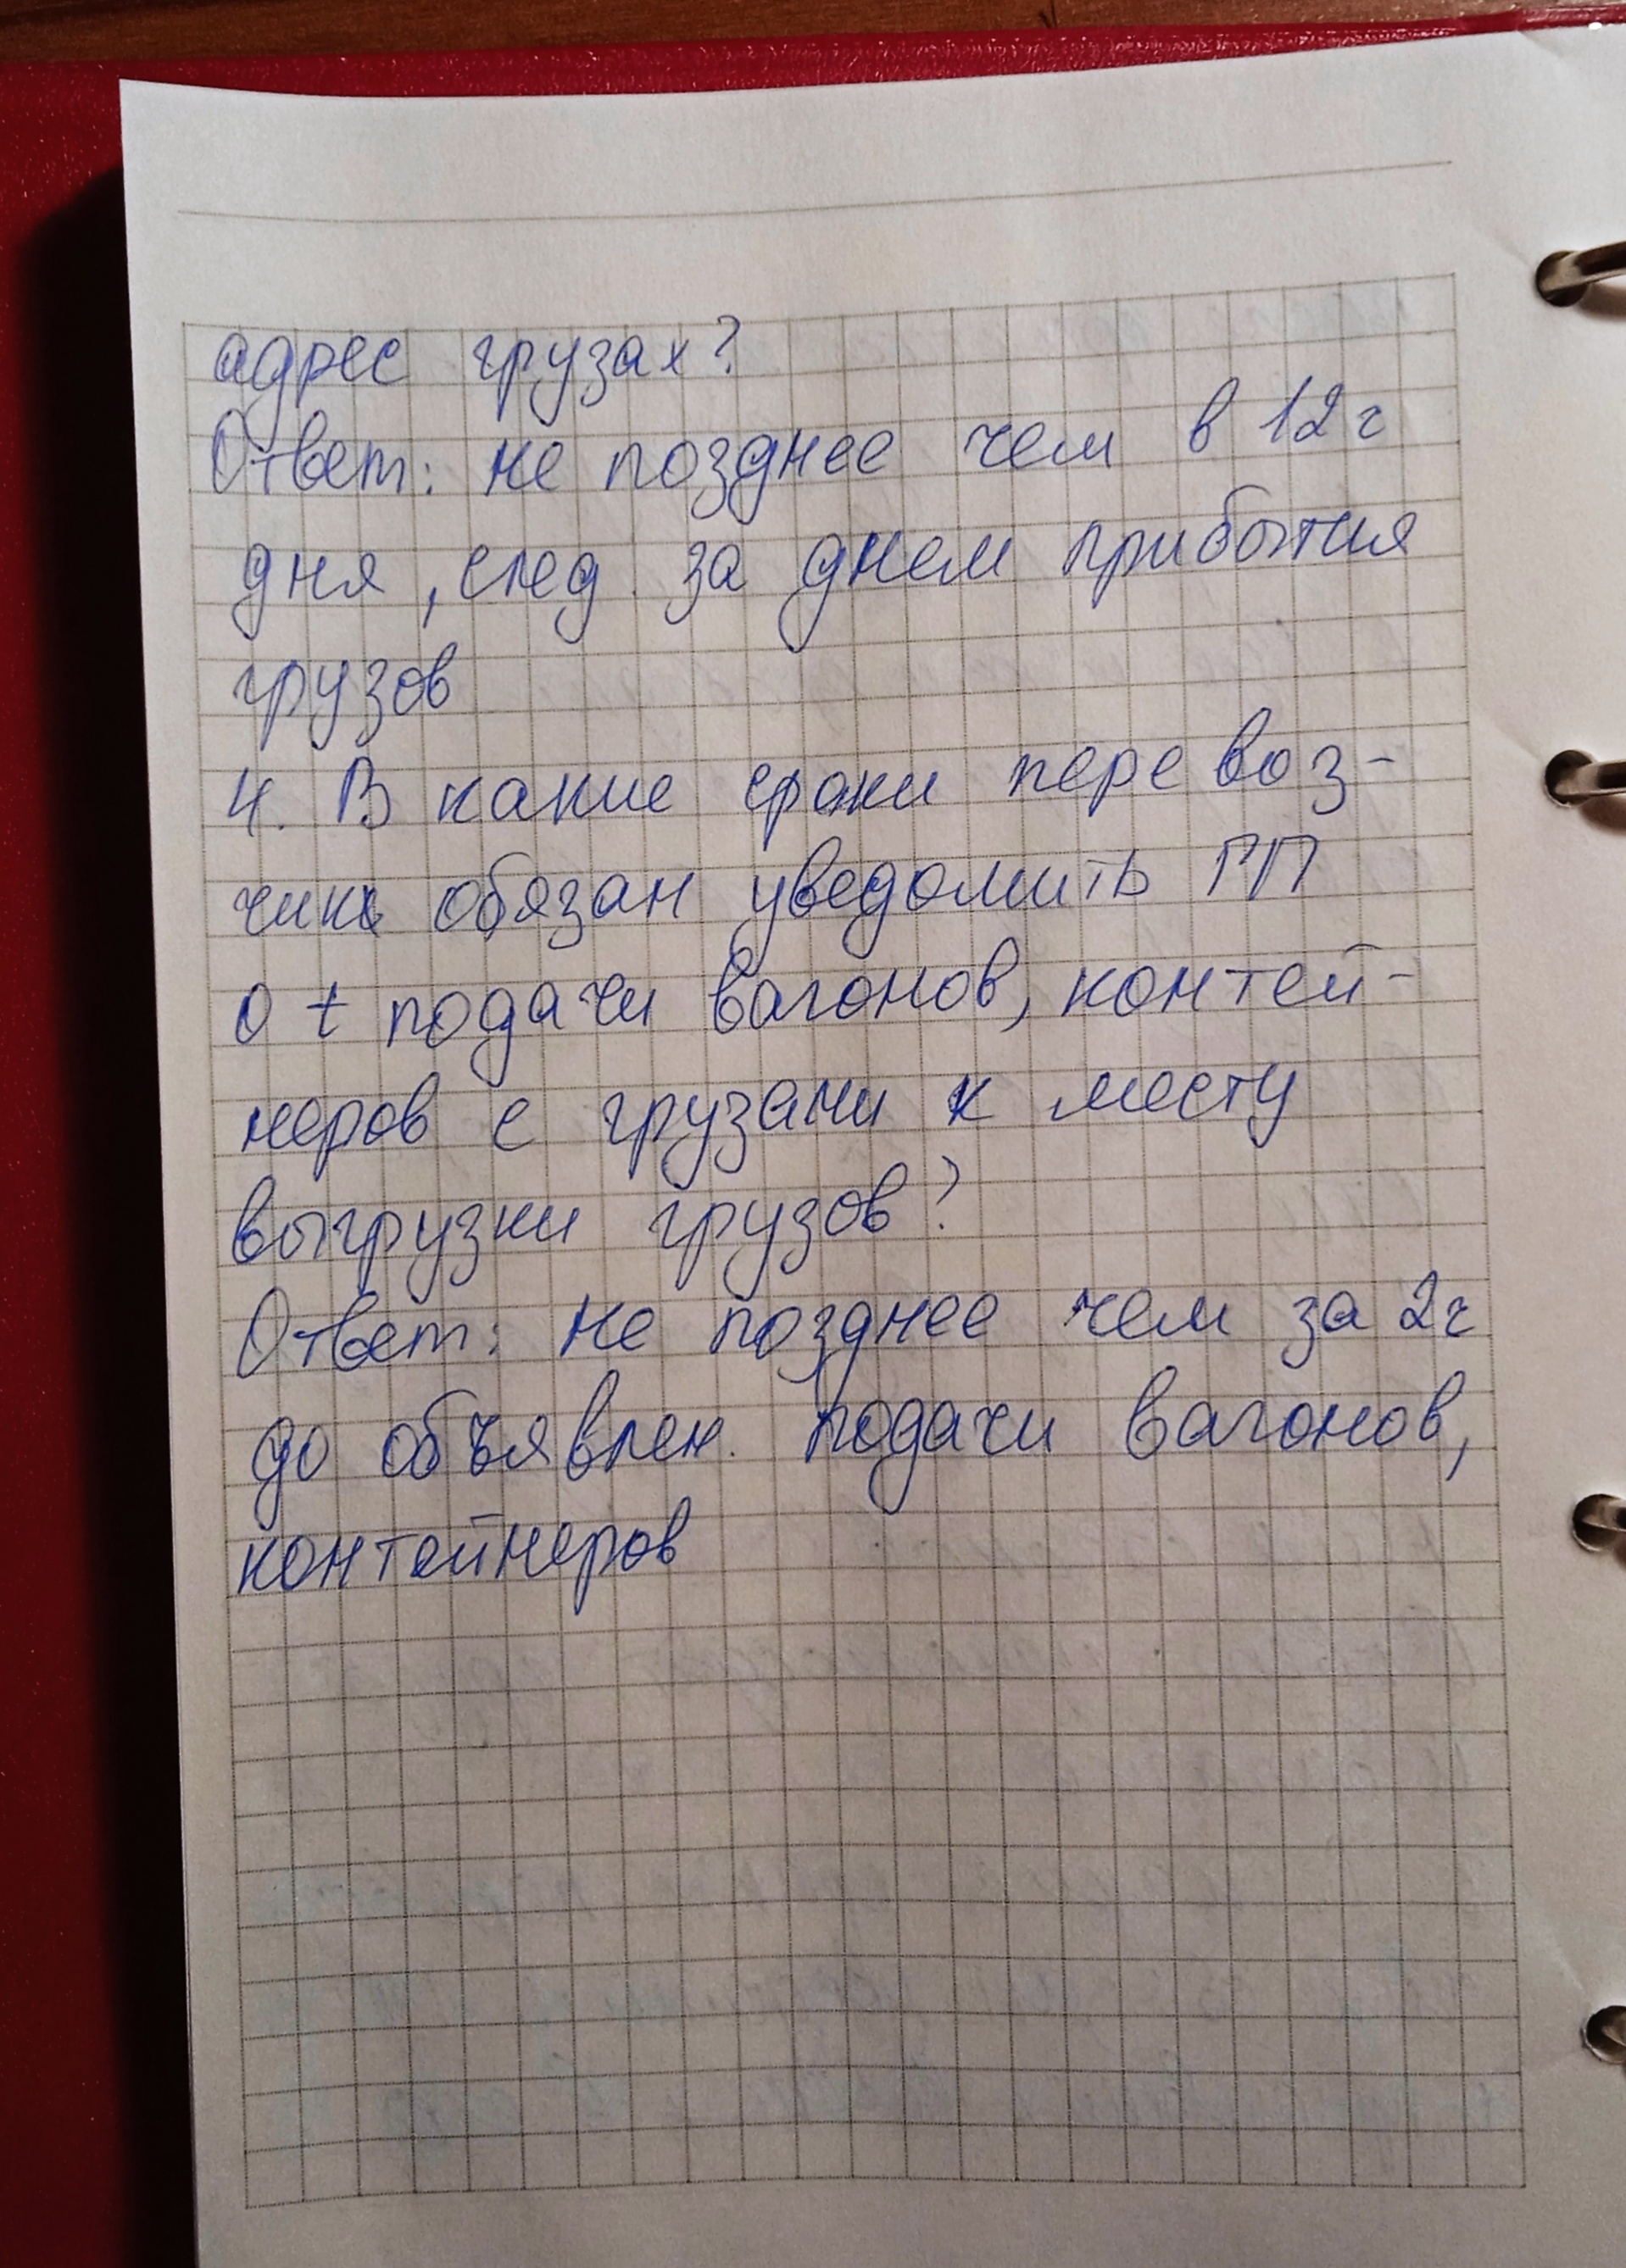 адрес грузах?
Ответ: не позднее чем в 12 ч
дня, след. за днем прибытия
грузов
4. В какие сроки перевоз-
чик обязан уведомить ГП
о t подачи вагонов, контей-
неров с грузами к месту
выгрузки грузов?
Ответ: не позднее чем за 2ч
до объявлен. подачи вагонов,
контейнеров